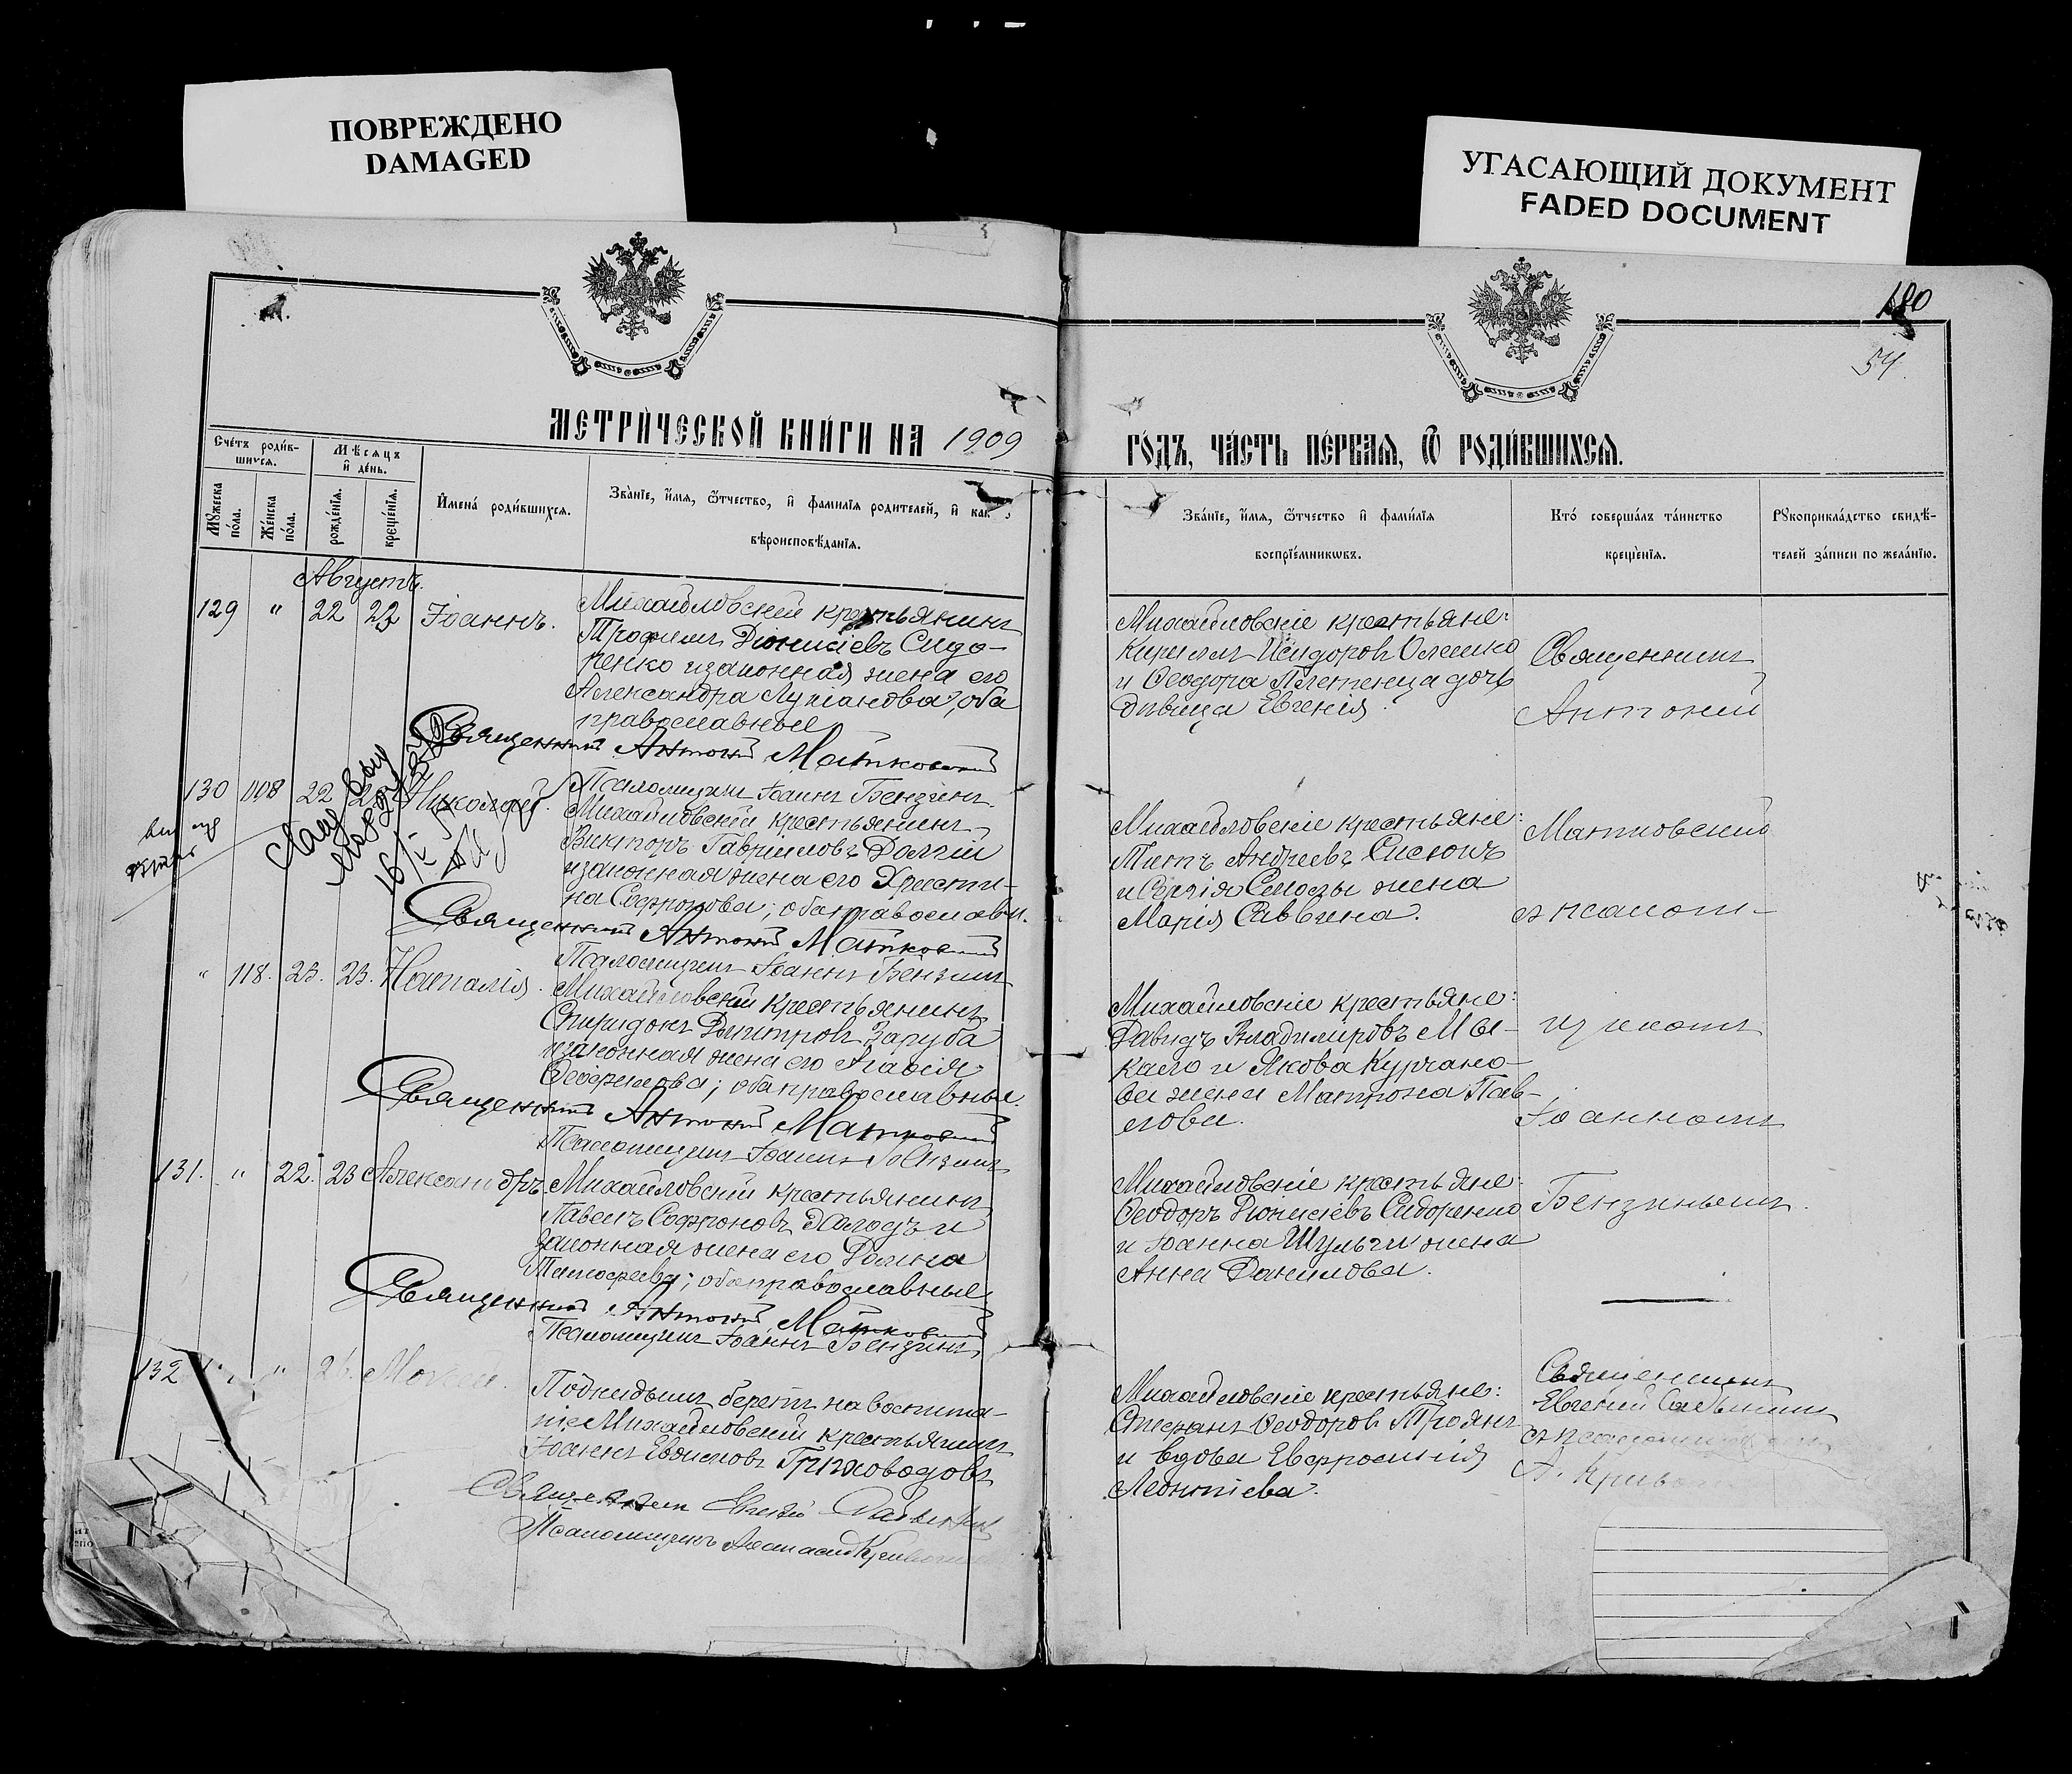 ПОВРЕЖДЕНО
DAMAGED
УГАСАЮЩИЙ ДОКУМЕНТ
FADED DOCUMENT
180
54.
МЕТРИЧЕСКОЙ КНИГИ НА 1909
ГОДЪ, ЧАСТЬ ПЕРВАЯ, Ѿ РОДИВШИХСЯ.
Счетъ родив-
шихся.
Мѣсяцъ
и день.
Мужеска
пола.
Женска
пола.
рожденія.
крещенія.
Имена родившихся.
Званіе, имя, ѿтчество, и фамилія родителей, и как
вѣроисповѣданія.
Званіе, имя, ѿтчество и фамилія
воспріемниковъ.
Кто совершалъ таинство
крещенія.
Рукоприкладство свидѣ-
телей записи по желанію.
Августъ.
129 " 22 23 Іоаннъ.
Михайловскій крестьянинъ
Трофимъ Діонисіевъ Сидо-
ренко и законная жена его
Александра Лукіанова, оба
православные
Священникъ Антоній Матковскій
Псаломщикъ Іоаннъ Бензинъ.
Михайловскіе крестьяне:
Кириллъ Исидоровъ Олешко
и Ѳеодора Плетенца дочь
дѣвица Евгенія.
Священникъ
Антоній
130 22 Николай.
Михайловскій крестьянинъ
Викторъ Гавриловъ Долгій
и законная жена его Христи-
на Софронова; оба правосл��вн.
Священникъ Антоній Матковскій
Псаломщикъ Іоаннъ Бензинъ
Михайловскіе крестьяне:
Титъ Андреевъ Сисюкъ
и Сергія жена
Марія Саввина.
Матковскій
съ псалом-
" 118. 23. 23. Наталія.
Михайловскій крестьянинъ
Спиридонъ Димитровъ Заруба
и законная жена его Агафія
оба православные.
Священникъ Антоній Матковскій
Псаломщикъ Іоаннъ Бензинъ
Михайловскіе крестьяне:
Давидъ Владиміровъ Мы-
кало и Якова Курчано-
ва жена Матрона Пав-
лова.
щикомъ
Іоанномъ
131. " 22. 23 Александръ
Михайловскій крестьянинъ
Павелъ Софроновъ и
законная жена его Домна
Тимофеева; оба православные
Священникъ Антоній Матковскій
Псаломщикъ Іоаннъ Бензинъ
Михайловскіе крестьяне:
Ѳеодоръ Діонисіевъ Сидоренко
и Іоанна Шульги жена
Анна Данилова.
Бензинымъ.
132 "
Подкидышъ беретъ на воспита-
ніе Михайловскій крестьянинъ
Іоаннъ Евфимовъ
Священникъ Евгеній
Псаломщикъ Афанасій
Михайловскіе крестьяне:
Стефанъ Ѳеодоровъ Троянъ
и вдова Евфросинія
Леонтіева.
Священникъ
Евгеній
съ псаломщикомъ
А.